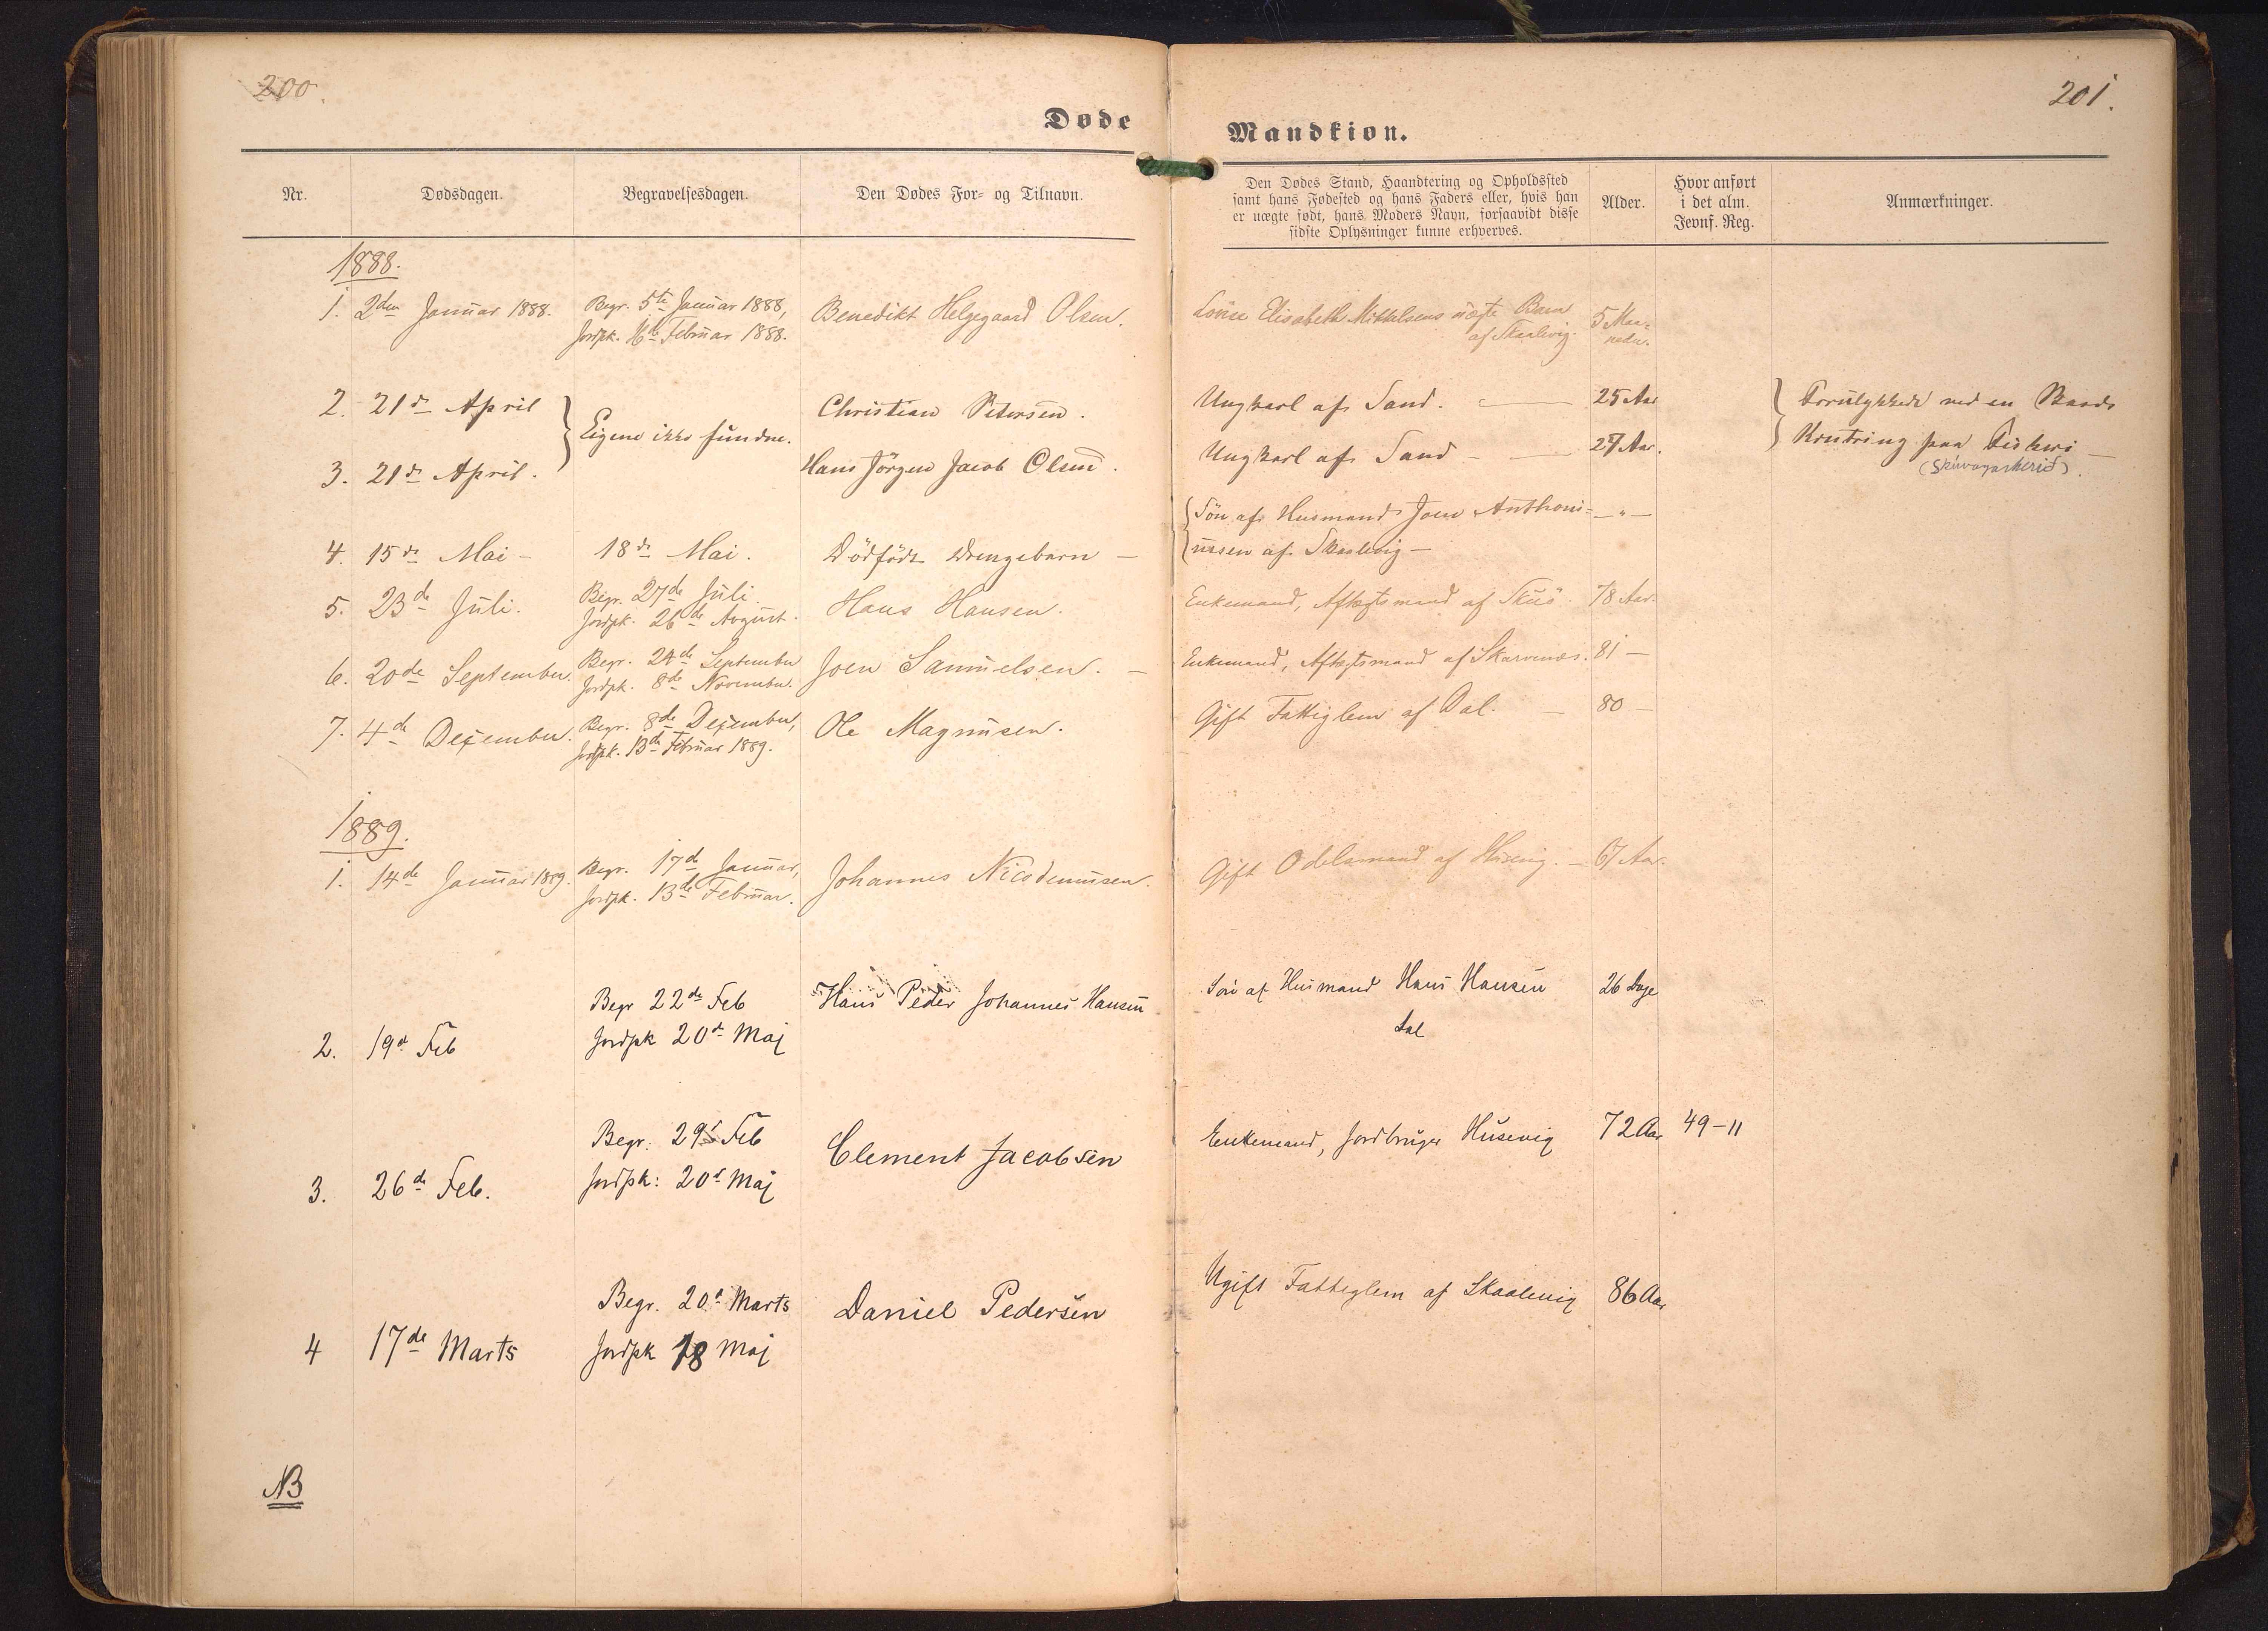 200.
Døde
Nr. Dødsdagen. Begravelsesdagen. Den Dødes For- og Tilnavn.
1888.
1. 2den Januar 1888. Begr. 5te Januar 1888, Benedikt Helgegaard Olsen.
Jordpk. 16de Februar 1888.
2. 21de April Christian Petersen.
Ligene ikke fundne.
3. 21de April. Hans Jörgen Jacob Olsen.
4. 15de Mai - 18de Mai. Dödfödt Drengebarn —
5. 23de Juli. Begr. 27de Juli. Hans Hansen.
Jordpk. 26de August.
6. 20de September. Begr. 24de September Joen Samuelsen. —
Jordpk. 8de November.
7. 4de Dezember. Begr. 8de Dezember, Ole Magnusen.
Jordpk. 13de Februar 1889.
1889.
1. 14de Januar 1889. Begr. 17de Januar, Johannes Nicodemusen.
Jordpk. 13de Februar.
Begr 22de Feb Hans Peder Johannes Hansen
2. 19de Feb Jordpk 20de Maj
Begr. 29d Feb Clement Jacobsen
3. 26de Feb. Jordpk: 20d Maj
Begr. 20d Marts Daniel Pedersen
4 17de Marts Jordpk 18 Maj
NB
201.
Mandkion.
Den Dødes Stand, Haandtering og Opholdssted
samt hans Fødested og hans Faders eller, hvis han
er uægte født, hans Moders Navn, forsaavidt disse
sidste Oplysninger kunne erhverves.
Alder.
Hvor anført
i det alm.
Jevnf. Reg.
Anmærkninger.
Elisabeth Mikkelsens uægte Barn 5 Maa-
af Skaalevig. neder.
Ungkarl af Sand. — 25 Aar Forulykkede ved en Baads
Ungkarl af Sand — 27 Aar. Kæntring paa Fiskeri —
Sön af Husmand Joen Anthoni= — " —
ussen af Skaalevig —
Enkemand, Aftægtsmand af Skuö. 78 Aar.
Enkemand, Aftægtsmand af Skarvenæs. 81 —
Gift Fattiglem af Dal. — 80 —
Gift Odelsmand af Husevig. — 67 Aar.
Sön af Husmand Hans Hansen 26 Dage
Dal
Enkemand, Jordbruger Husevig 72 Aar 49-11
Ugift Fattiglem af Skaalevig 86 Aar